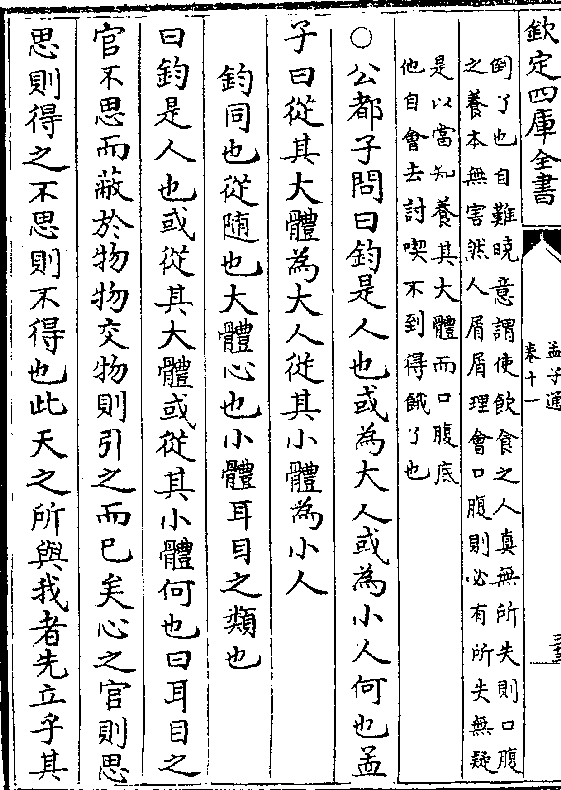 欽定四庫全書
孟子通
卷十一
倒了也自難曉意謂使飲食之人真無所失則口腹
之養本無害然人屑屑理會口腹則必有所失無疑
是以當知養其大體而口腹底
他自會去討喫不到得餓了也
○公都子問曰鈞是人也或為大人或為小人何也孟
子曰從其大體為大人從其小體為小人
鈞同也從隨也大體心也小體耳目之類也
曰鈞是人也或從其大體或從其小體何也曰耳目之
官不思而蔽於物物交物則引之而已矣心之官則思
思則得之不思則不得也此天之所與我者先立乎其